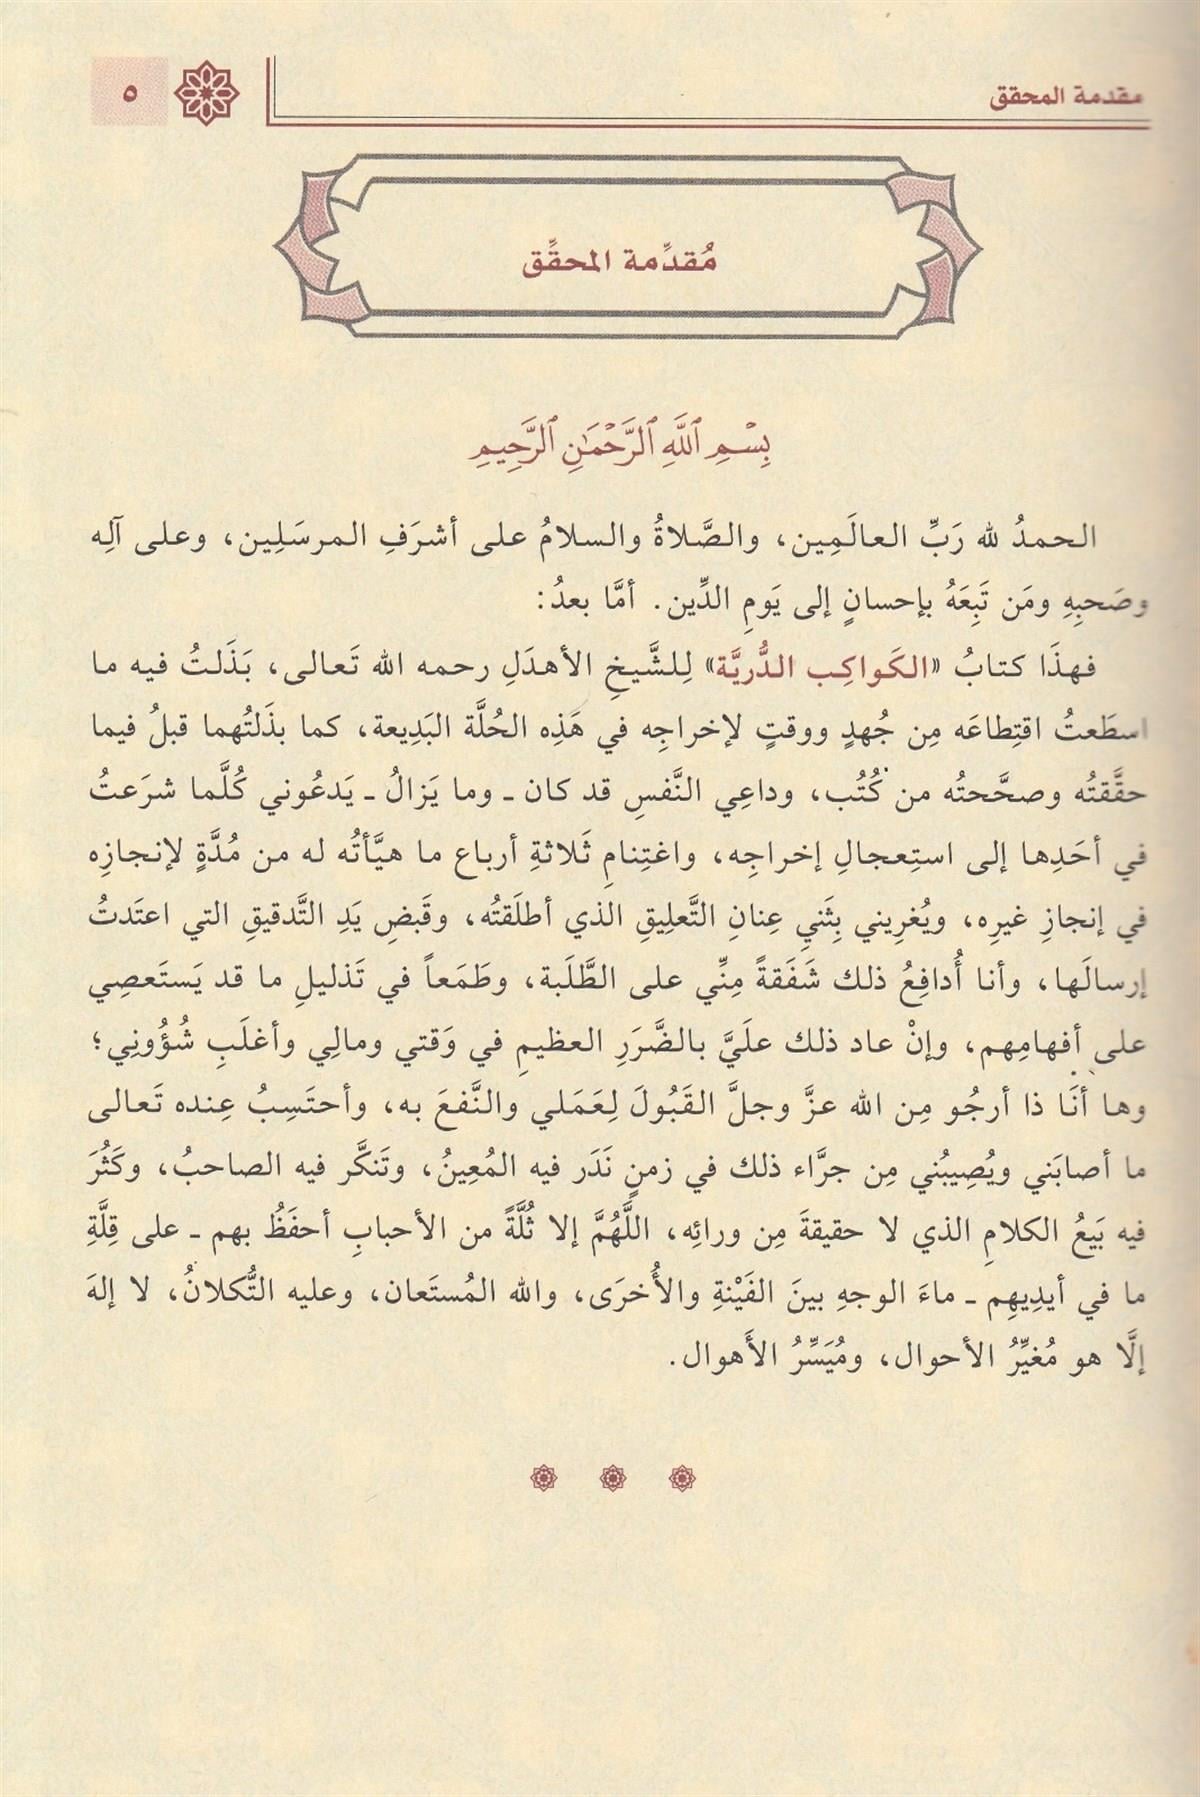 مقدمة المحقق
٥
مُقدِّمة المحقِّق
بِسْمِ ٱللَّهِ ٱلرَّحْمَـٰنِ ٱلرَّحِيمِ
الحمدُ لله رَبِّ العالَمِين، والصَّلاةُ والسلامُ على أشرَفِ المرسَلِين، وعلى آلِه
وصَحبِهِ ومَن تَبِعَهُ بإحسانٍ إلى يَومِ الدِّين. أمَّا بعدُ:
فهذَا كتابُ «الكَواكِب الدُّريَّة» لِلشَّيخِ الأهدَلِ رحمه الله تَعالى، بَذَلتُ فيه ما
اسطَعتُ اقتِطاعَه مِن جُهدٍ ووقتٍ لإخراجِه في هَذِه الحُلَّة البَدِيعة، كما بذَلتُهما قبلُ فيما
حقَّقتُه وصحَّحتُه من كُتُب، وداعِي النَّفسِ قد كان ـ وما يَزالُ ـ يَدعُوني كُلَّما شرَعتُ
في أحَدِها إلى استِعجالِ إخراجِه، واغتِنامِ ثَلاثةِ أرباع ما هيَّأتُه له من مُدَّةٍ لإنجازِه
في إنجازِ غيرِه، ويُغرِيني بِثَنيِ عِنانِ التَّعلِيقِ الذي أطلَقتُه، وقَبضِ يَدِ التَّدقيقِ التي اعتَدتُ
إرسالَها، وأنا أُدافِعُ ذلك شَفَقةً مِنِّي على الطَّلَبة، وطَمَعاً في تَذليلِ ما قد يَستَعصِي
على أفهامِهم، وإنْ عاد ذلك علَيَّ بالضَّرَرِ العظيمِ في وَقتي ومالِي وأغلَبِ شُؤُونِي؛
وها أنَا ذا أرجُو مِن الله عزَّ وجلَّ القَبُولَ لِعَمَلي والنَّفعَ به، وأحتَسِبُ عِنده تَعالى
ما أصابَني ويُصِيبُني مِن جرَّاء ذلك في زمنٍ نَدَر فيه المُعِينُ، وتَنكَّر فيه الصاحبُ، وكَثُرَ
فيه بَيعُ الكلامِ الذي لا حقيقةَ مِن ورائِه، اللَّهُمَّ إلا ثُلَّةً من الأحبابِ أحفَظُ بهم ـ على قِلَّةِ
ما في أيدِيهِم ـ ماءَ الوجهِ بينَ الفَيْنةِ والأُخرَى، والله المُستَعان، وعليه التُّكلانُ، لا إلهَ
إلَّا هو مُغيِّرُ الأحوال، ومُيَسِّرُ الأَهوال.